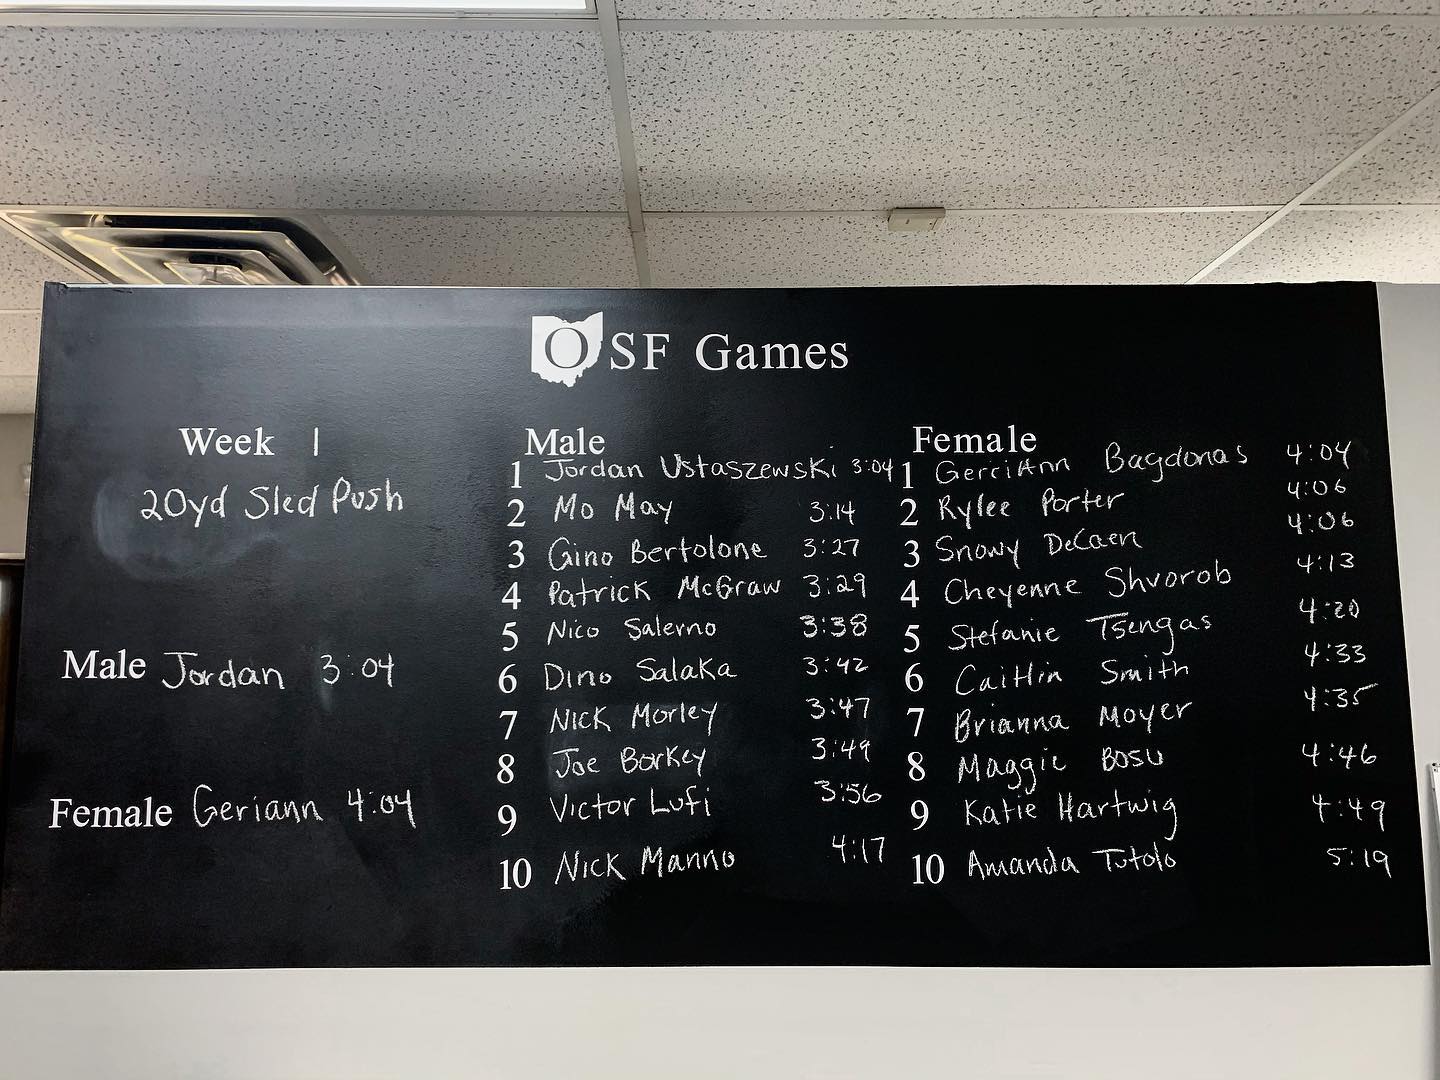 OSF Games
Week 1
20yd Sled Push
Male Jordan 3:04
Female Geriann 4:04
Male
1 Jordan Ustaszewski 3:04
2 Mo May 3:14
3 Gino Bertolone 3:27
4 Patrick McGraw 3:29
5 Nico Salerno 3:38
6 Dino Salaka 3:42
7 Nick Morley 3:47
8 Joe Borkey 3:49
9 Victor Lufi 3:56
10 Nick Manno 4:17
Female
1 GerriAnn Bagdonas 4:04
2 Rylee Porter 4:06
3 Snowy DeCaen 4:06
4 Cheyenne Shvorob 4:13
5 Stefanie Tsengas 4:20
6 Caitlin Smith 4:33
7 Brianna Moyer 4:35
8 Maggie Bosu 4:46
9 Katie Hartwig 4:49
10 Amanda Tutolo 5:19